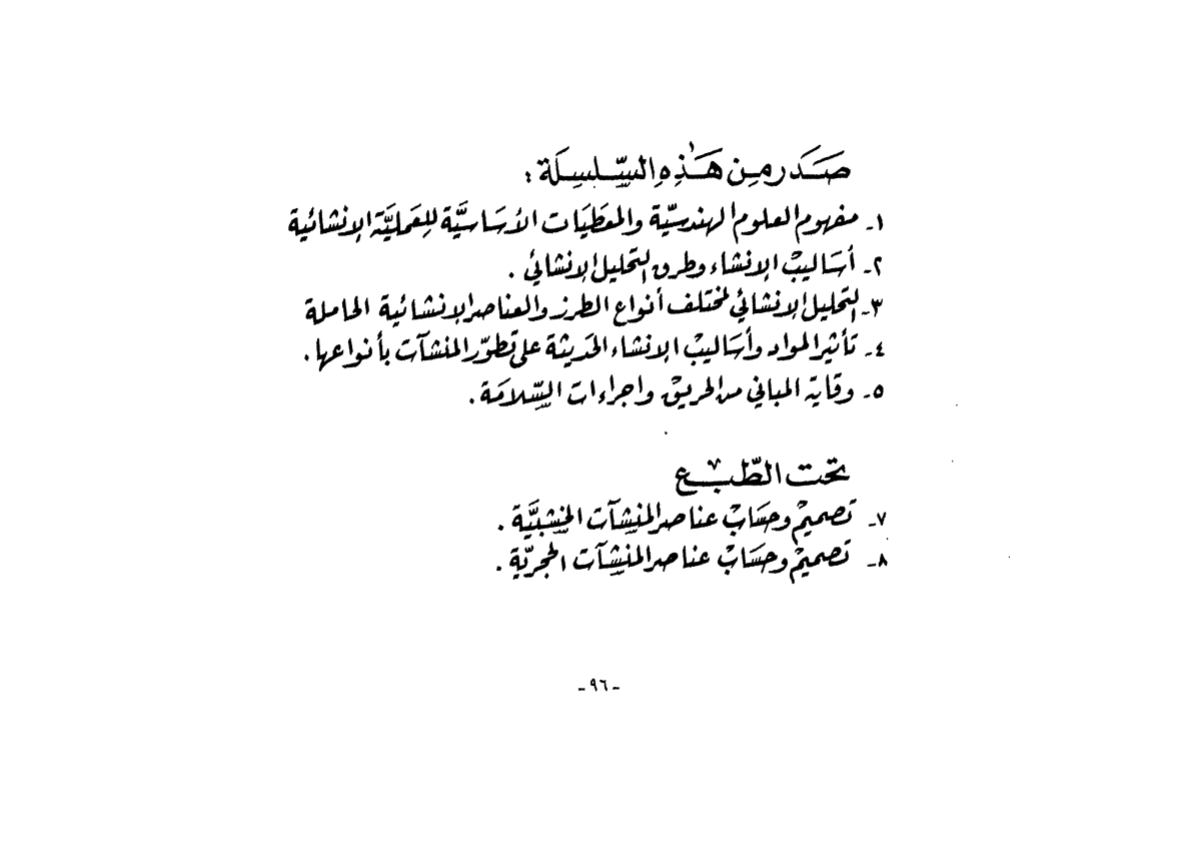 صَدَر مِن هَٰذِهِ السِّلسِلَة :
١- مفهوم العلوم الهندسيّة والمعطَيَات الأسَاسيَّة للِعَمليَّة الإنشائية
٢- أسَاليبْ الإنشاء وطرق التحليل الإنشائي .
٣- التحليل الإنشائي لمختلف أنواع الطرز والعناصر الإنشائية الحاملة
٤- تأثير المواد وأسَاليبْ الإنشاء الحَديثة على تطوّر المنشآت بأنواعها .
٥- وقاية المباني من الحريق واجراءات السِّلامَة .
تحت الطّبع
٧- تصميمْ وحسَابْ عناصر المنشآت الخشبيَّة .
٨- تصميمْ وحسَابْ عناصر المنشآت الحجريّة .
-٩٦-